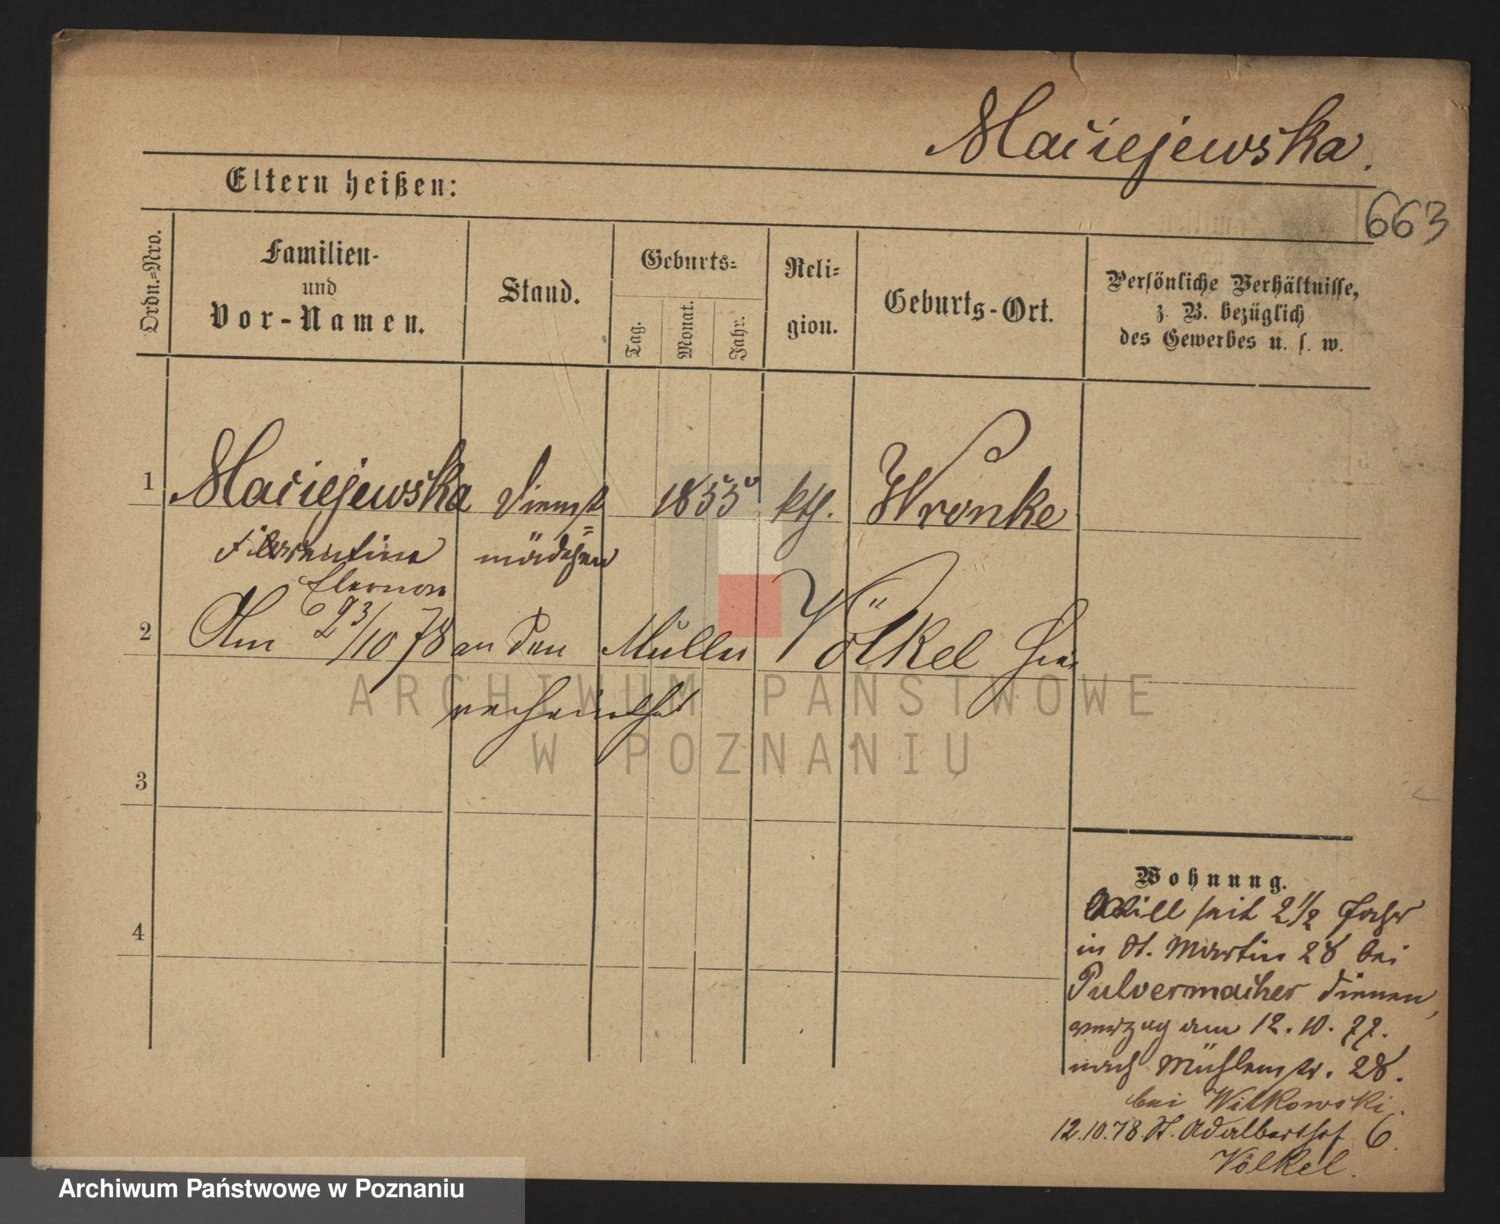 Maciejewska.
663
Eltern heißen:
Ordn.=Nro.
Familien-
und
Vor-Namen.
Stand.
Geburts=
Tag.
Monat.
Jahr.
Reli=
gion.
Geburts-Ort.
Persönliche Verhältnisse,
z. B. bezüglich
des Gewerbes u. s. w.
1 Maciejewska Dienst= 1855 kth. Wronke
Florentine mädchen
Eleonore
2 Am 23/10 78 an den Müller Völkel hier
verheirathet
3
4
Wohnung.
Will seit 2 1/2 Jahr
in St. Martin 28 bei
Pulvermacher dienen,
verzog am 12.10.77.
nach Mühlenstr. 28.
bei Witkowski.
12.10.78 St. Adalberthof 6.
Völkel.
ARCHIWUM PAŃSTWOWE
W POZNANIU
Archiwum Państwowe w Poznaniu